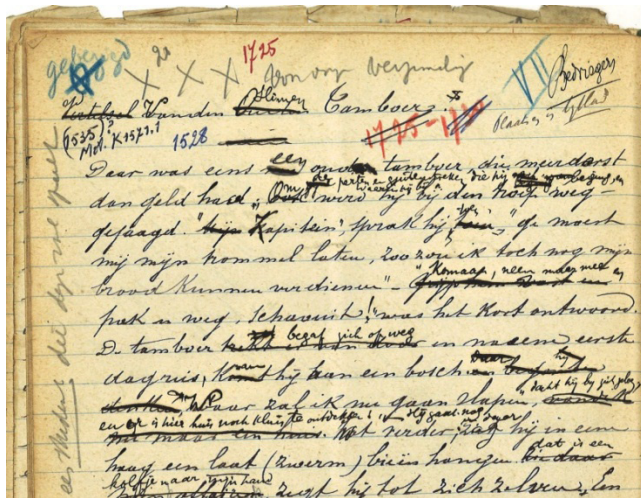 gebezigd 2e 1725
X X X Voor verzameling VII Bedriegers
Vertelsel Vanden Slimen Tamboer.
(1535)?
Mot. K1571.1 1528 1725-1740 Plaats in tijdblad
Daar was eens een oude tamboer, die meer dorst
dan geld had. Om de perten en zuipe die hij
werd hij bij den troep weg-
gejaagd. "Kapitein", sprak hij, "ge moest
mij mijn trommel laten, zoo zou ik toch nog mijn
brood kunnen verdienen" - "Komaan, neem maar mee en
pak u weg, schavuit!" was het kort antwoord.
De tamboer begaf zich op weg en na eene eerste
dagreis, kwam hij aan een bosch
"Waar zal ik nu gaan slapen", dacht hij bij zich zelven,
en er is hier huis noch kluis te ontdekken! Hij gaat nog
wat verder, daar zag hij in eene
haag een laat (zwerm) bieën hangen. dat is een
zegt hij tot zich zelven, En